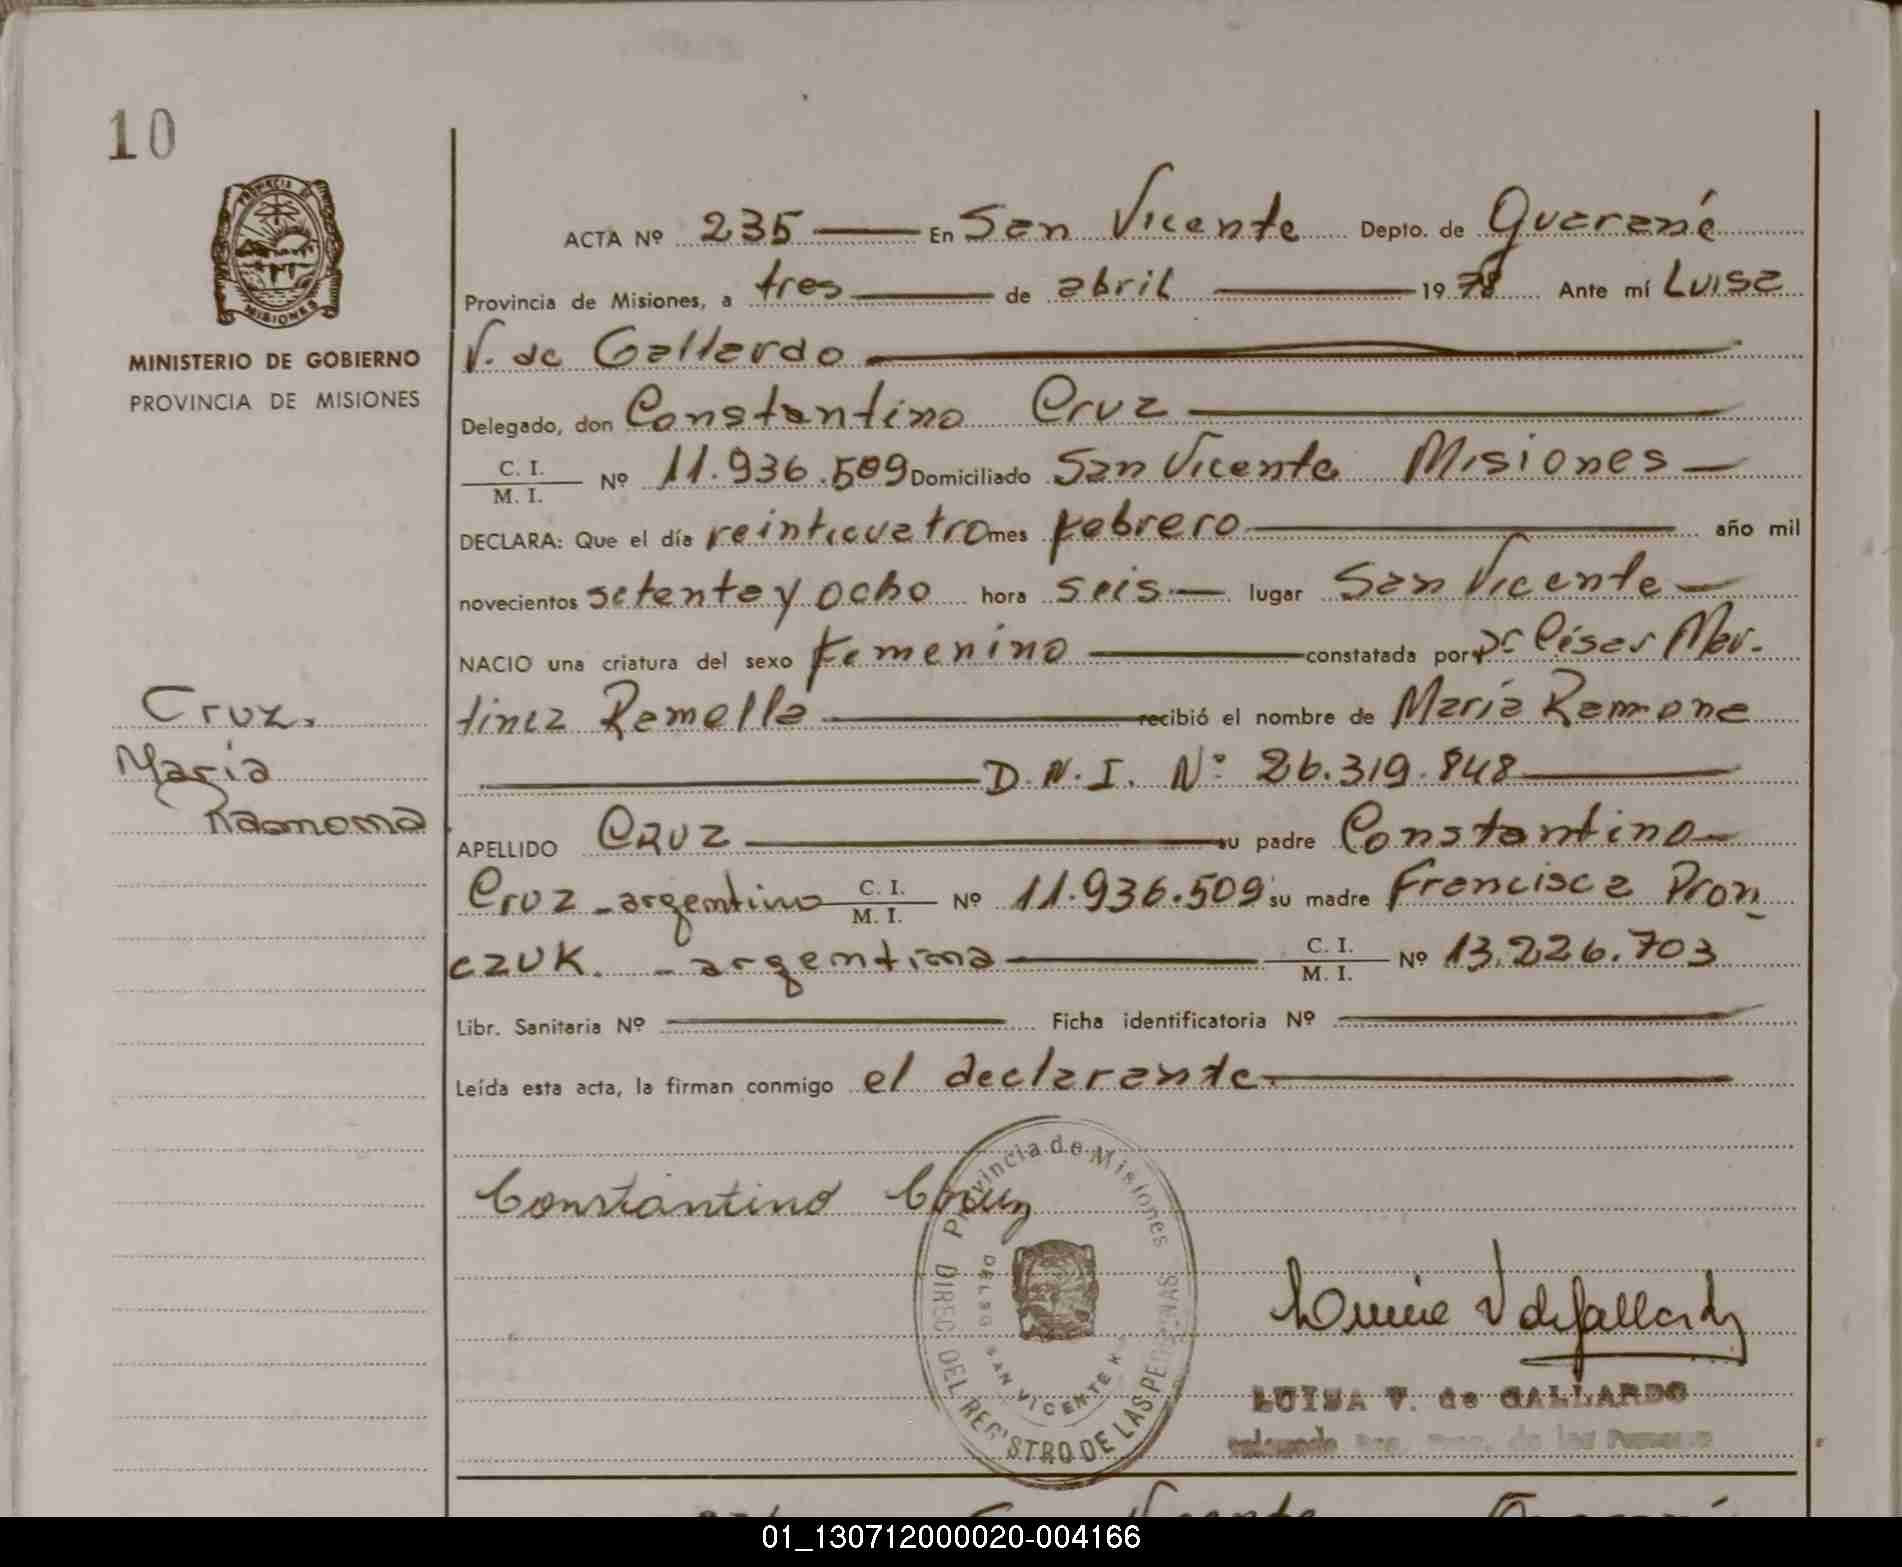 10
PROVINCIA DE
MISIONES
MINISTERIO DE GOBIERNO
PROVINCIA DE MISIONES
ACTA Nº 235 En San Vicente Depto. de Guaraní
Provincia de Misiones, a tres de abril 1978 Ante mí Luisa
V. de Gallardo
Delegado, don Constantino Cruz
C. I. / M. I. Nº 11.936.509 Domiciliado San Vicente Misiones
DECLARA: Que el día veinticuatro mes febrero año mil
novecientos setenta y ocho hora seis lugar San Vicente
NACIO una criatura del sexo femenino constatada por Dr César Mar-
tinez Ramella recibió el nombre de María Ramona
D.N.I. Nº 26.319.848
APELLIDO Cruz su padre Constantino
Cruz - argentino C. I. / M. I. Nº 11.936.509 su madre Francisca Pron
czuk. - argentina C. I. / M. I. Nº 13.226.703
Libr. Sanitaria Nº Ficha identificatoria Nº
Leída esta acta, la firman conmigo el declarante
Cruz.
Maria
Ramona
Constantino Cruz
Provincia de Misiones
DIREC. DEL REGISTRO DE LAS PERSONAS
DELEG SAN VICENTE
Luisa V de Gallardo
LUISA V. de GALLARDO
de las Personas
San Vicente Guaraní
01_130712000020-004166